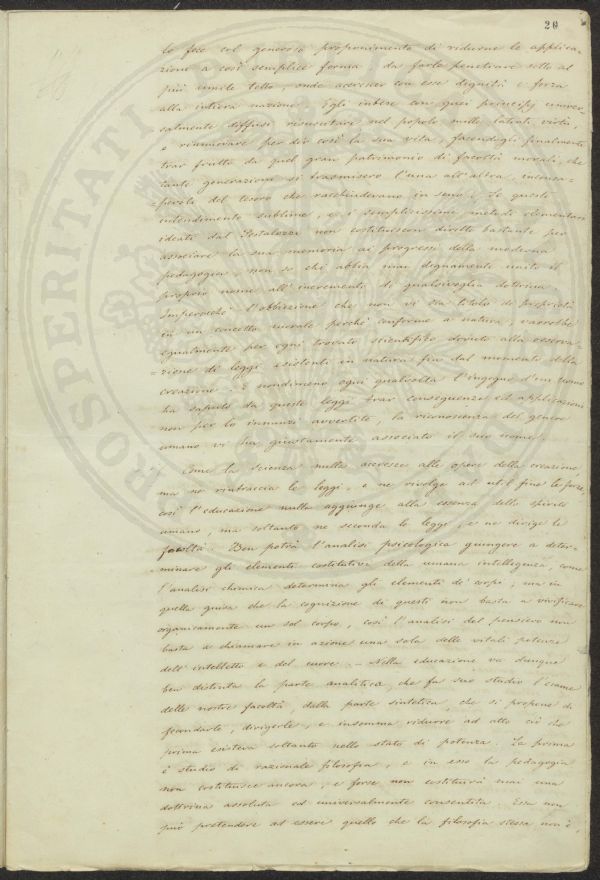 20
lo fece col generoso proponimento di ridurne le applica-
zione a così semplice forma da farlo penetrare sotto al
più umile tetto, onde accrescer con esse dignità e forza
alla intiera nazione. Egli intese con quei principj univer-
salmente diffusi resuscitare nel popolo mille latenti virtù,
e rinnuovare per dir così la sua vita, facendogli finalmente
trar frutto da quel gran patrimonio di facoltà morali, che
tante generazioni si trasmisero l'una all'altra, inconsa-
=pevoli del tesoro che racchiudevano in seno. Se questo
intendimento sublime, e i semplicissimi metodi elementari
ideati dal Pestalozzi non costituiscon diritto bastante per
associare la sua memoria ai progressi della moderna
pedagogia, non so chi abbia mai degnamente unito il
proprio nome all'incremento di qualsivoglia dottrina.
Imperocchè l'obbiezione che non vi sia titolo di proprietà
in un concetto morale perchè conforme a natura, varrebbe
egualmente per ogni trovato scientifico dovuto alla osserva-
=zione di leggi esistenti in natura fin dal momento della
creazione. E nondimeno ogni qualvolta l'ingegno d'un uomo
ha saputo da queste leggi trar conseguenze ed applicazioni
non per lo innanzi avvertite, la riconoscenza del genere
umano vi ha giustamente associato il suo nome.
Come la scienza nulla accresce alle opere della creazione,
ma ne rintraccia le leggi, e ne rivolge ad util fine le forze,
così l'educazione nulla aggiunge alla essenza dello spirito
umano, ma soltanto ne seconda le leggi, e ne dirige le
facoltà. Ben potrà l'analisi psicologica giungere a deter-
minare gli elementi costitutivi della umana intelligenza, come
l'analisi chimica determina gli elementi de' corpi; ma in
quella guisa che la cognizione di questi non basta a vivificare
organicamente un sol corpo, così l'analisi del pensiero non
basta a chiamare in azione una sola delle vitali potenze
dell'intelletto e del cuore. - Nella educazione va dunque
ben distinta la parte analitica, che fa suo studio l'esame
delle nostre facoltà, dalla parte sintetica, che si propone di
fecondarle, dirigerle, e insomma ridurre ad atto ciò che
prima esisteva soltanto nello stato di potenza. La prima
è studio di razionale filosofia, e in esso la pedagogia
non costituisce ancora, e forse non costituirà mai una
dottrina assoluta ed universalmente consentita. Essa non
può pretendere ad essere quello che la filosofia stessa non è,
ROSPERITATI